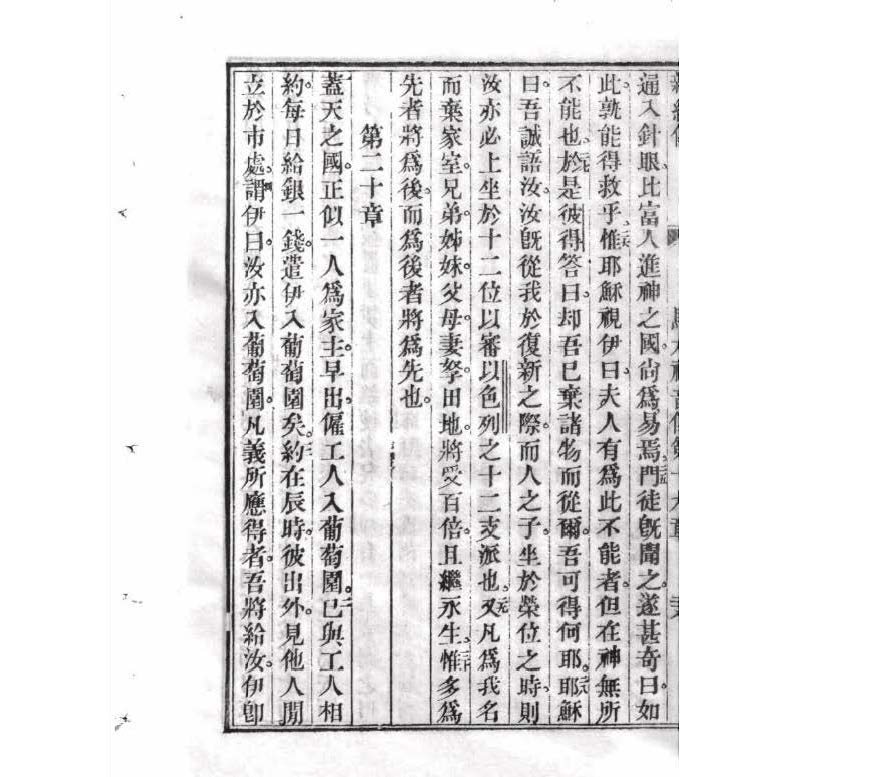 通入針眼、比富人進神之國、尙爲易焉、門徒旣聞之、遂甚奇曰、如
此孰能得救乎、惟耶穌視伊曰、夫人有爲此不能者、但在神無所
不能也、於是彼得答曰、却吾已棄諸物而從爾、吾可得何耶、耶穌
曰、吾誠語汝、汝旣從我於復新之際、而人之子坐於榮位之時、則
汝亦必上坐於十二位以審以色列之十二支派也、又凡爲我名
而棄家室、兄弟、姊妹、父母、妻孥、田地、將受百倍、且繼永生、惟多爲
先者將爲後、而爲後者將爲先也。
第二十章
蓋天之國、正似一人爲家主、早出、僱工人入葡萄園、二已與工人相
約、每日給銀一錢、遣伊入葡萄園矣、三約在辰時、彼出外、見他人閒
立於市處、四謂伊曰、汝亦入葡萄園、凡義所應得者、吾將給汝、伊卽